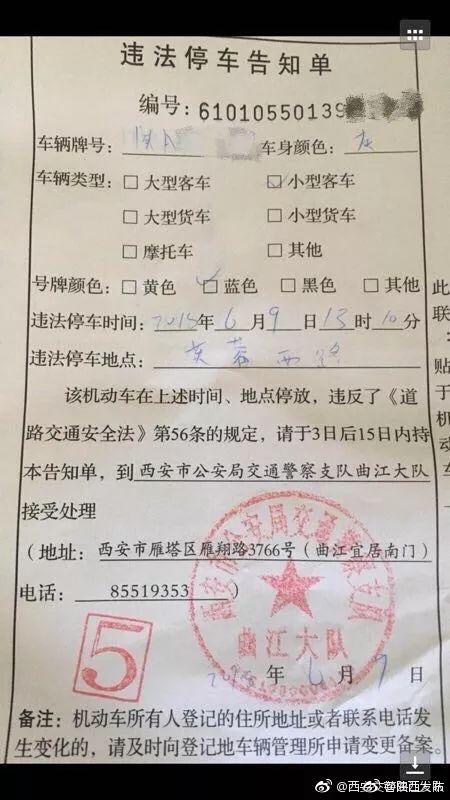 违法停车告知单
编号: 61010550139
车辆牌号: 陕A 车身颜色: 灰
车辆类型: □大型客车 ☑小型客车
□大型货车 □小型货车
□摩托车 □其他
号牌颜色: □黄色 ☑蓝色 □黑色 □其他
违法停车时间: 2018年6月9日13时10分
违法停车地点: 芙蓉西路
该机动车在上述时间、地点停放,违反了《道
路交通安全法》第56条的规定,请于3日后15日内持
本告知单,到西安市公安局交通警察支队曲江大队
接受处理
(地址: 西安市雁塔区雁翔路3766号(曲江宜居南门)
电话: 85519353 )
西安市公安局交通警察支队
曲江大队
5
2018年6月 日
备注: 机动车所有人登记的住所地址或者联系电话发
生变化的,请及时向登记地车辆管理所申请变更备案。
此
联
:
贴
于
机
动
车